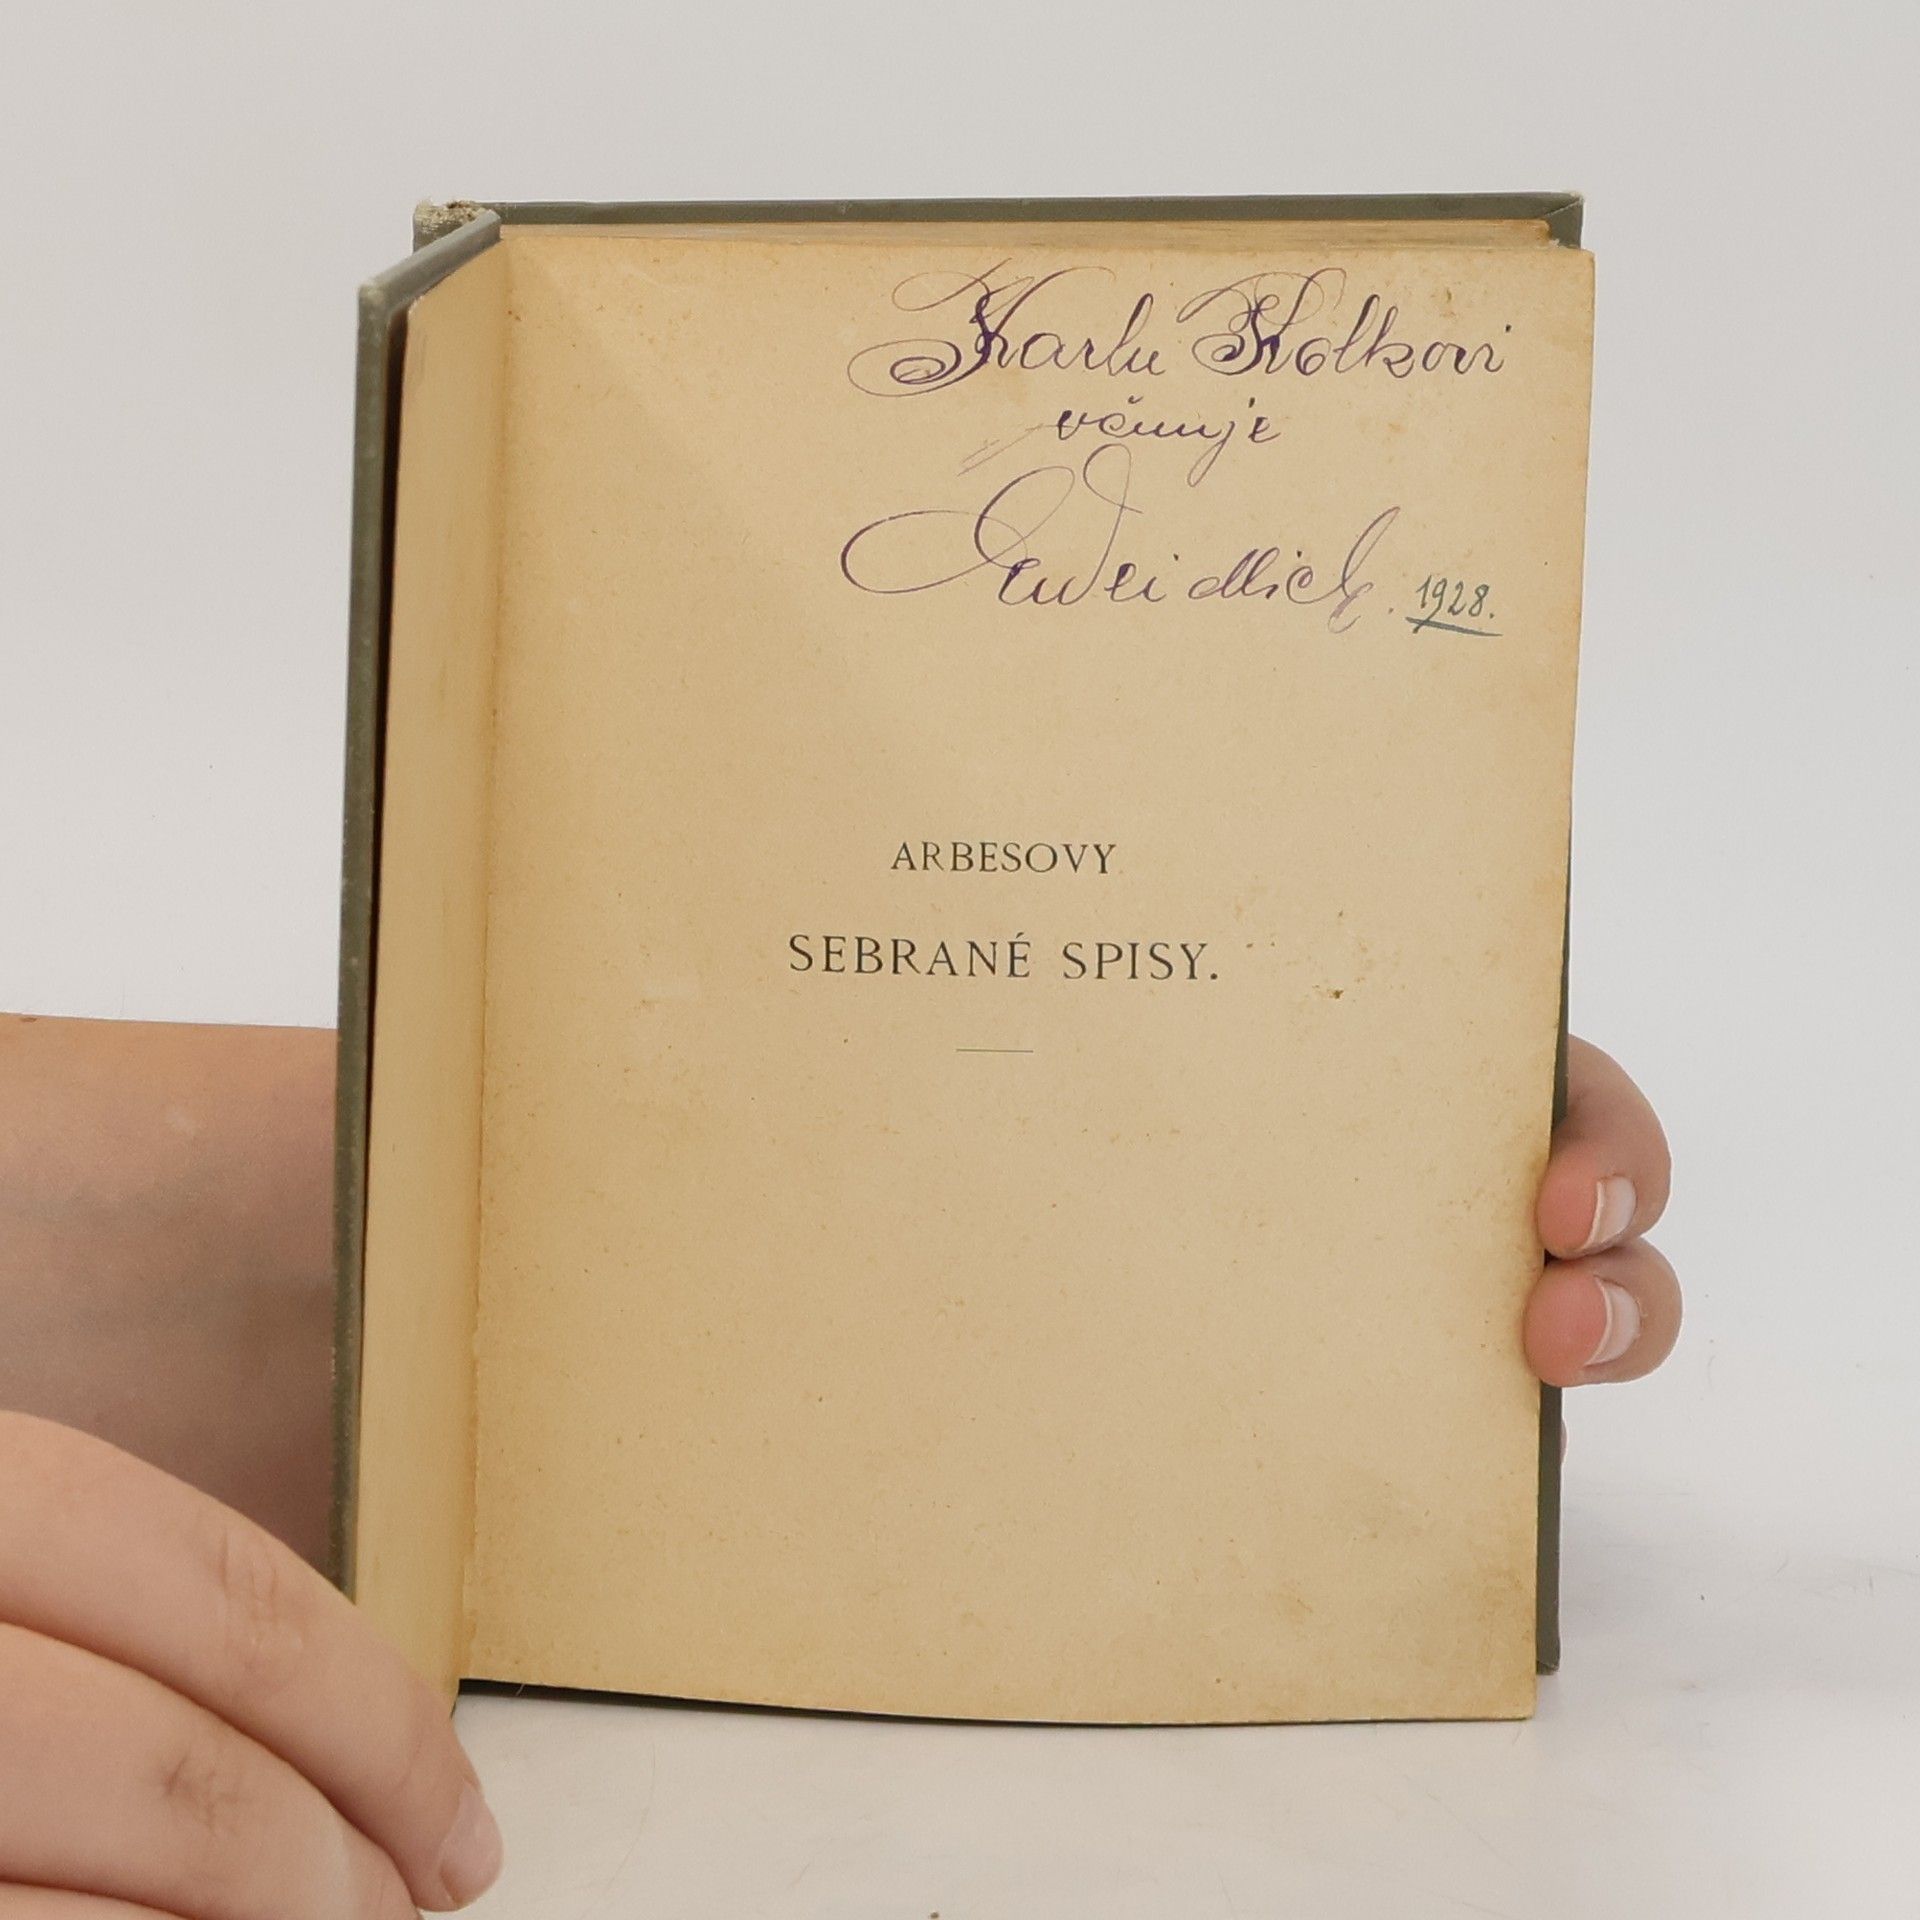 Karlu Holkovi
věnuje
1928.
ARBESOVY
SEBRANÉ SPISY.